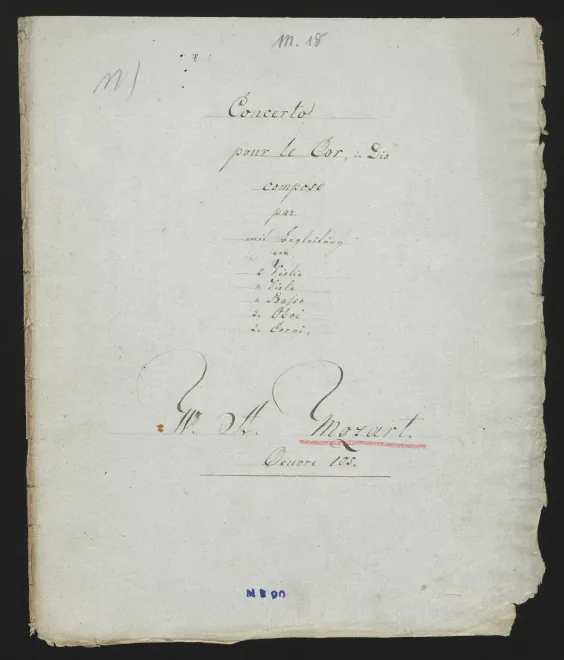 m. 18
1
Concerto
pour le Cor, in Dis
compose
par
mit Begleitung
von
2 Violin
1 Viola
1 Basso
2 Oboi
2 Corni.
W. A. Mozart.
Oeuvre 105.
M B 90